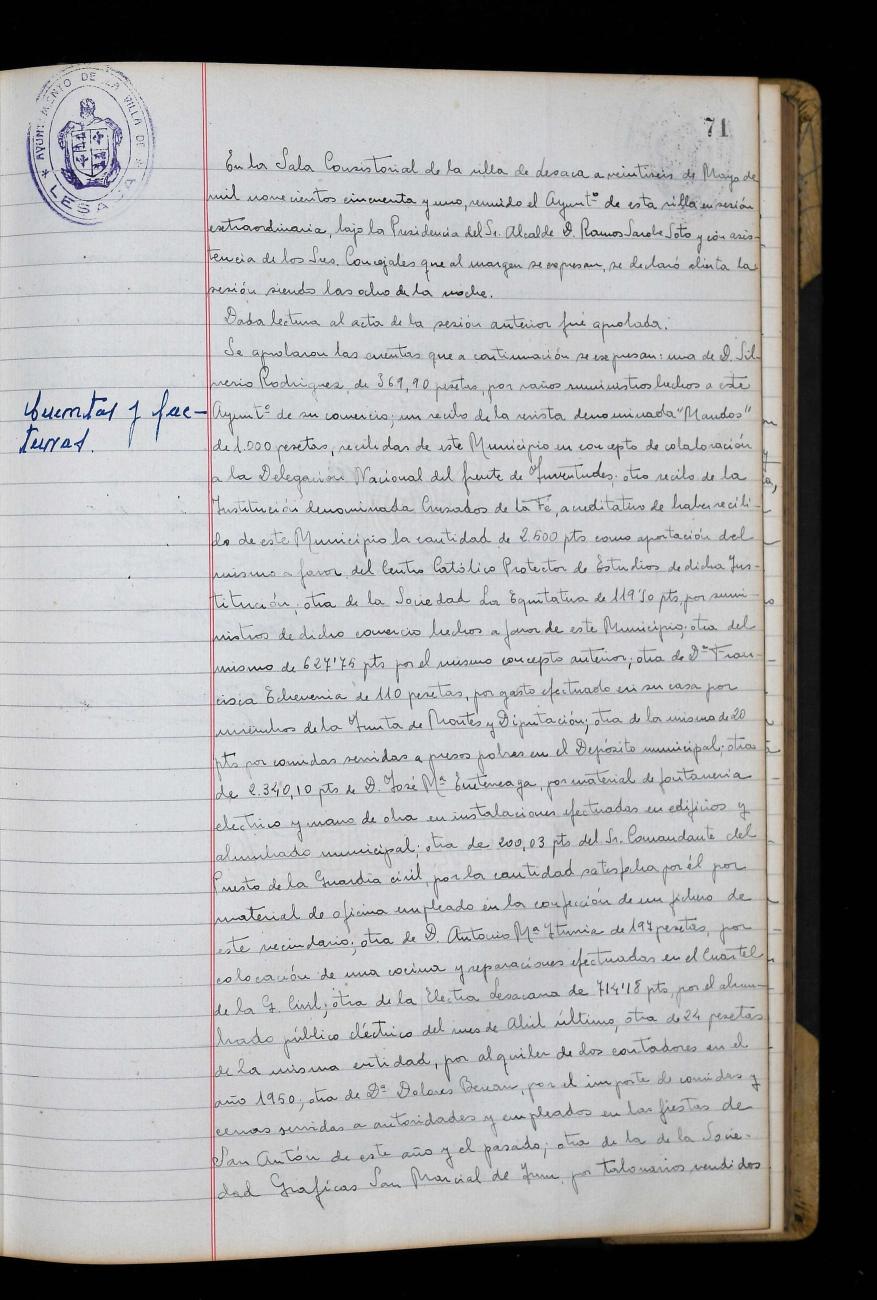 AYUNTAMIENTO DE LA VILLA DE
LESACA
71
Cuentas y fac-
turas.
En la Sala Consistorial de la villa de Lesaca a veintiseis de Mayo de
mil novecientos cincuenta y uno, reunido el Ayunt.º de esta villa en sesión
extraordinaria, bajo la Presidencia del Sr. Alcalde D. Ramos Sarobe Soto y con asis-
tencia de los Sres. Concejales que al margen se expresan, se declaró abierta la
sesión siendo las ocho de la noche.
Dada lectura al acta de la sesión anterior fué aprobada.
Se aprobaron las cuentas que a continuación se expresan: una de D. Sil-
verio Rodriguez, de 369,90 pesetas, por varios suministros hechos a este
Ayunt.º de su comercio; un recibo de la revista denominada "Mandos"
de 1.000 pesetas, recibidas de este Municipio en concepto de colaboración
a la Delegación Nacional del frente de Juventudes; otro recibo de la
Institución denominada Cruzados de la Fé, acreditativo de haber recibi-
do de este Municipio la cantidad de 2.500 pts como aportación del
mismo a favor del Centro Católico Protector de Estudios de dicha Ins-
titución; otra de la Sociedad La Equitativa de 119'50 pts, por sumi-
nistros de dicho comercio hechos a favor de este Municipio; otra del
mismo de 627'75 pts por el mismo concepto anterior; otra de Dª Fran-
cisca Echevenia de 110 pesetas, por gasto efectuado en su casa por
miembros de la Junta de Montes y Diputación; otra de la misma de 20
pts por comidas servidas a presos pobres en el Depósito municipal; otra
de 2.340,10 pts de D. José Mª por material de fontaneria
electrico y mano de obra en instalaciones efectuadas en edificios y
alumbrado municipal; otra de 200,03 pts del Sr. Comandante del
Puesto de la Guardia civil, por la cantidad satisfecha por él por
material de oficina empleado en la confección de un fichero de
este vecindario; otra de D. Antonio Mª Iturria de 197 pesetas, por
colocación de una cocina y reparaciones efectuadas en el Cuartel
de la G. Civil; otra de la Electra Lesacana de 714'18 pts, por el alum-
brado público eléctrico del mes de Abril último, otra de 24 pesetas
de la misma entidad, por alquiler de dos contadores en el
año 1950; otra de Dª Dolores por el importe de comidas y
cenas servidas a autoridades y empleados en las fiestas de
San Antón de este año y el pasado; otra de la de la Socie-
dad Graficas San Marcial de Irun, por talonarios vendidos